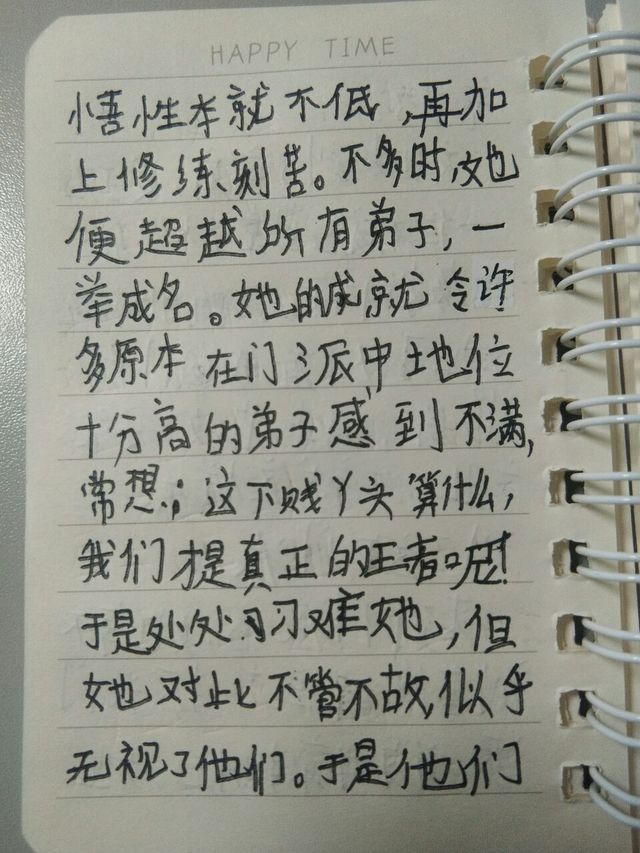 HAPPY TIME
悟性本就不低,再加
上修练刻苦。不多时,她
便超越所有弟子,一
举成名。她的成就令许
多原本在门派中地位
十分高的弟子感到不满,
常想:这下贱丫头算什么,
我们才是真正的王者呢!
于是处处刁难她,但
她对此不管不故,似乎
无视了他们。于是他们